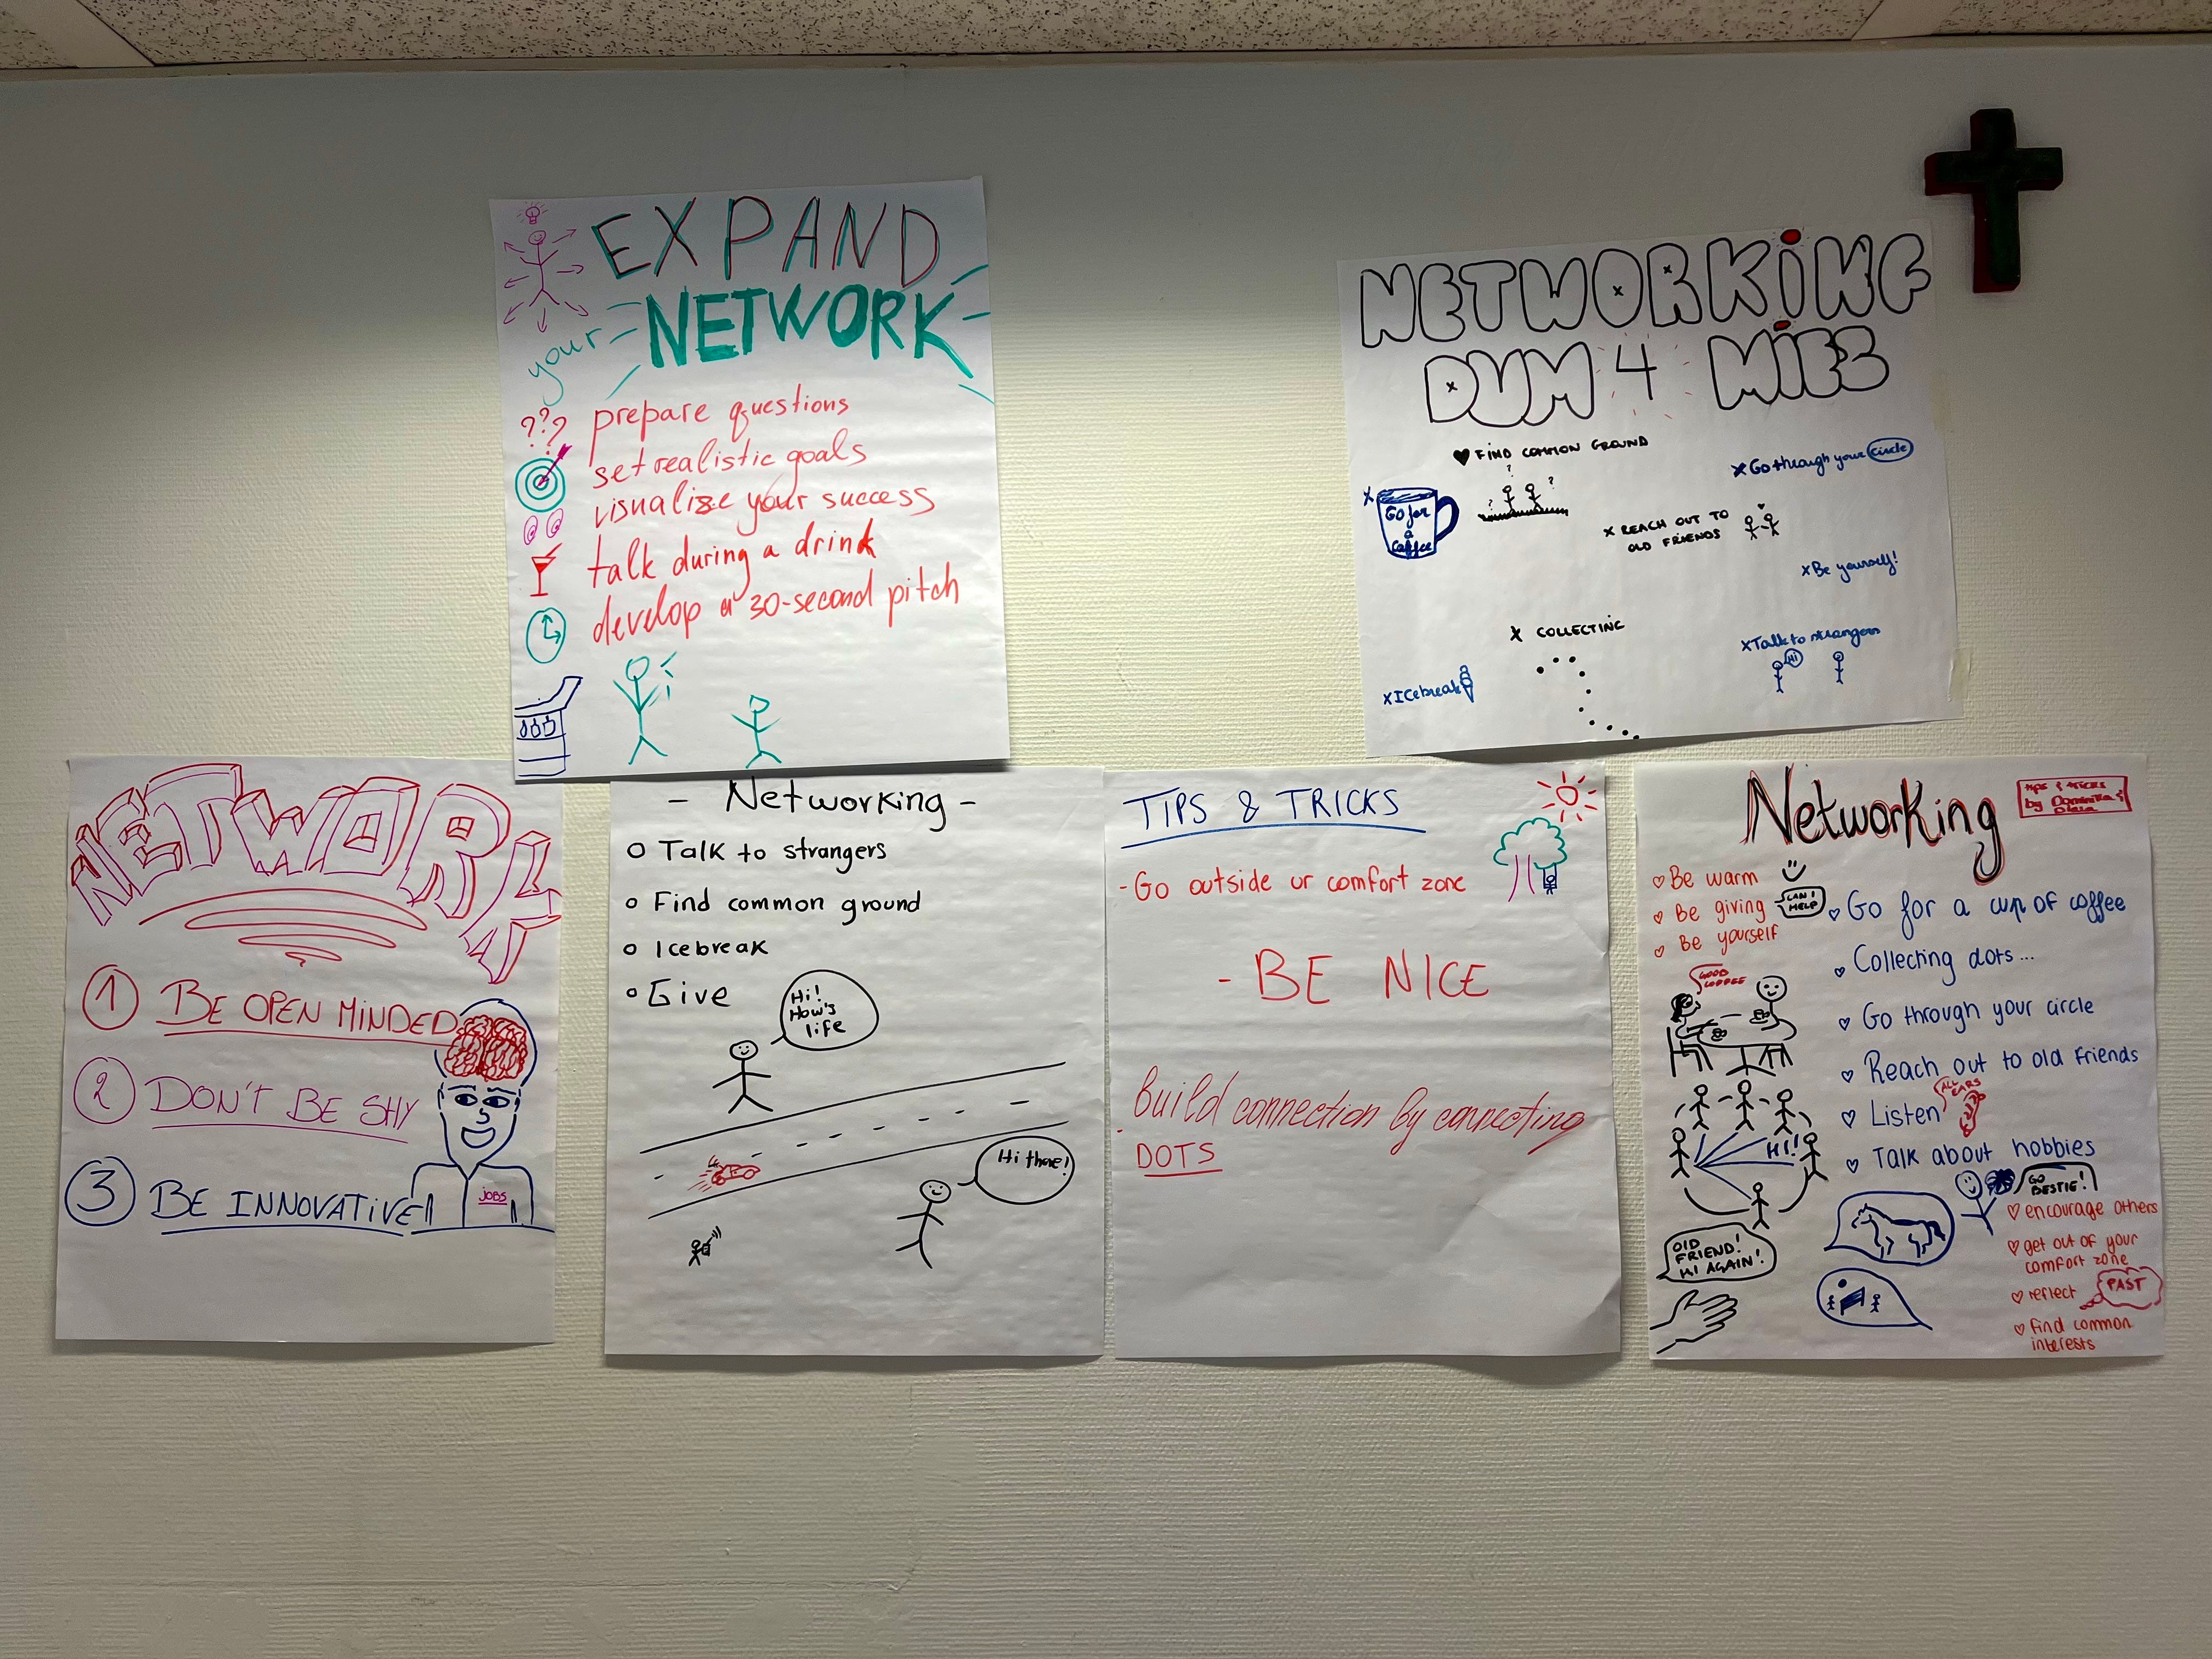 EXPAND
your NETWORK
??? prepare questions
set realistic goals
visualize your success
talk during a drink
develop a 30-second pitch
NETWORKING
DUM 4 MIES
FIND COMMON GROUND
x Go through your circle
x Go for
a
Coffee
x REACH OUT TO
OLD FRIENDS
x Be yourself!
x COLLECTING
x Talk to strangers
Hi
x Icebreak
NETWORK
1 BE OPEN MINDED
2 DON'T BE SHY
3 BE INNOVATIVE
JOBS
- Networking -
o Talk to strangers
o Find common ground
o Icebreak
o Give
Hi!
How's
life
Hi there!
TIPS & TRICKS
- Go outside ur comfort zone
- BE NICE
- Build connection by connecting
DOTS
Networking
TIPS & TRICKS
by
♡ Be warm
♡ Be giving
CAN I
HELP
♡ Be yourself
♡ Go for a cup of coffee
♡ Collecting dots...
♡ Go through your circle
♡ Reach out to old friends
♡ Listen
ALL
EARS
♡ Talk about hobbies
GOOD
COFFEE
HI!
OLD
FRIEND!
HI AGAIN!
GO
BESTIE!
♡ encourage others
♡ get out of your
comfort zone
♡ reflect
PAST
♡ Find common
interests